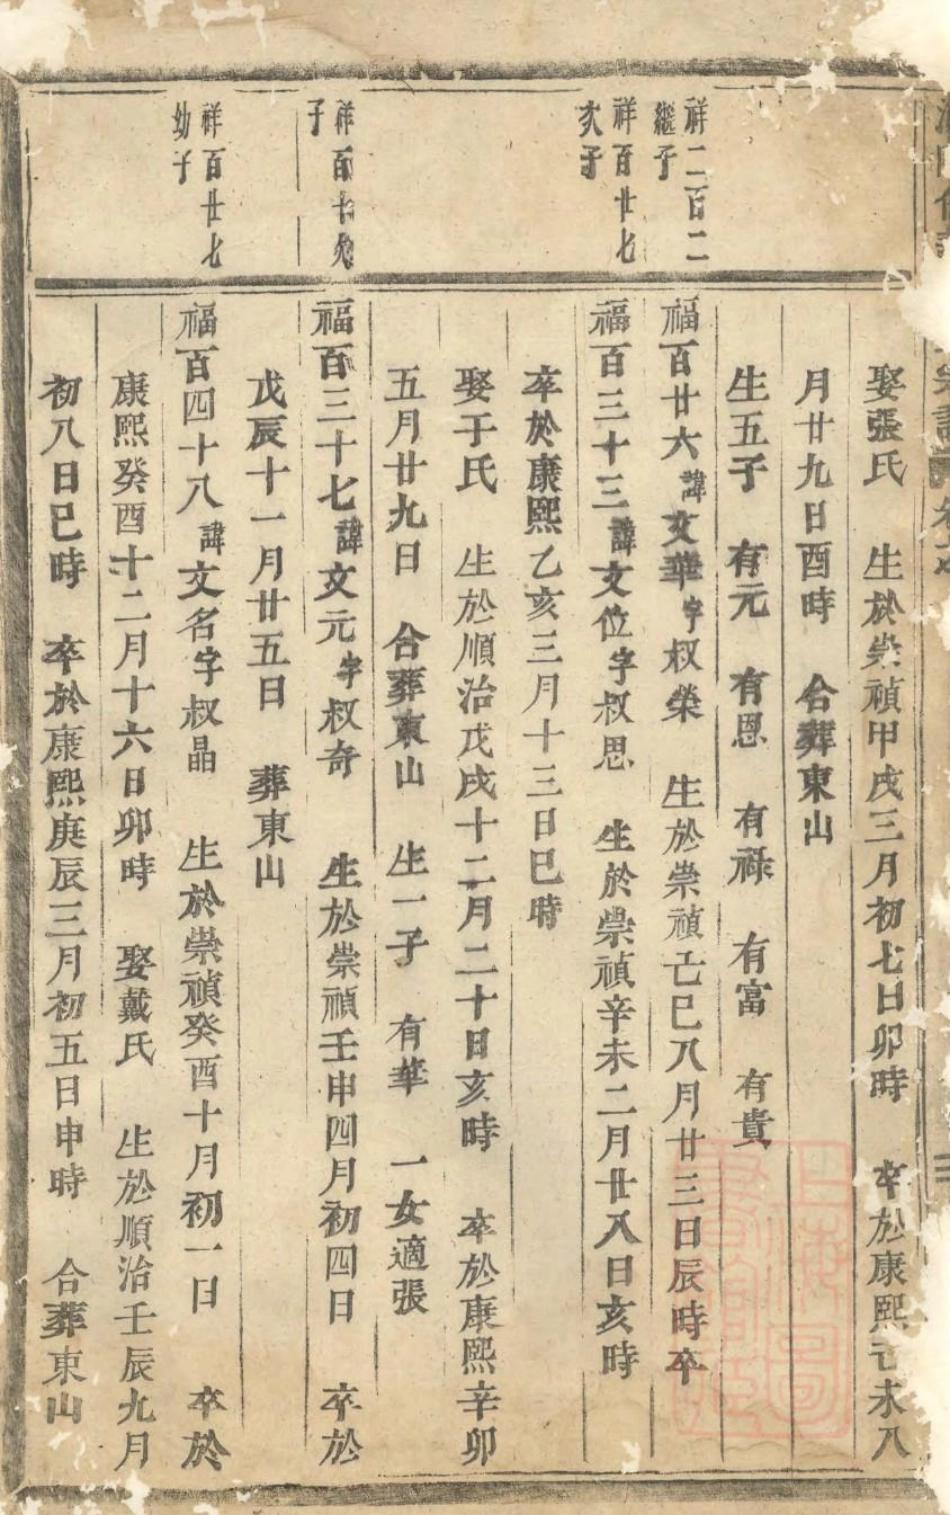 娶張氏 生於崇禎甲戌三月初七日卯時 卒於康熙己未八
月廿九日酉時 合葬東山
生五子 有元 有恩 有祿 有富 有貴
祥二百二
繼子
福百廿六諱文華字叔榮 生於崇禎己巳八月廿三日辰時卒
祥百廿七
次子
福百三十三諱文位字叔思 生於崇禎辛未二月廿八日亥時
卒於康熙乙亥三月十三日巳時
娶于氏 生於順治戊戌十二月二十日亥時 卒於康熙辛卯
五月廿九日 合葬東山 生一子 有華 一女適張
祥百十九
子
福百三十七諱文元字叔奇 生於崇禎壬申四月初四日 卒於
戊辰十一月廿五日 葬東山
祥百廿七
幼子
福百四十八諱文名字叔晶 生於崇禎癸酉十月初一日 卒於
康熙癸酉十二月十六日卯時 娶戴氏 生於順治壬辰九月
初八日巳時 卒於康熙庚辰三月初五日申時 合葬東山